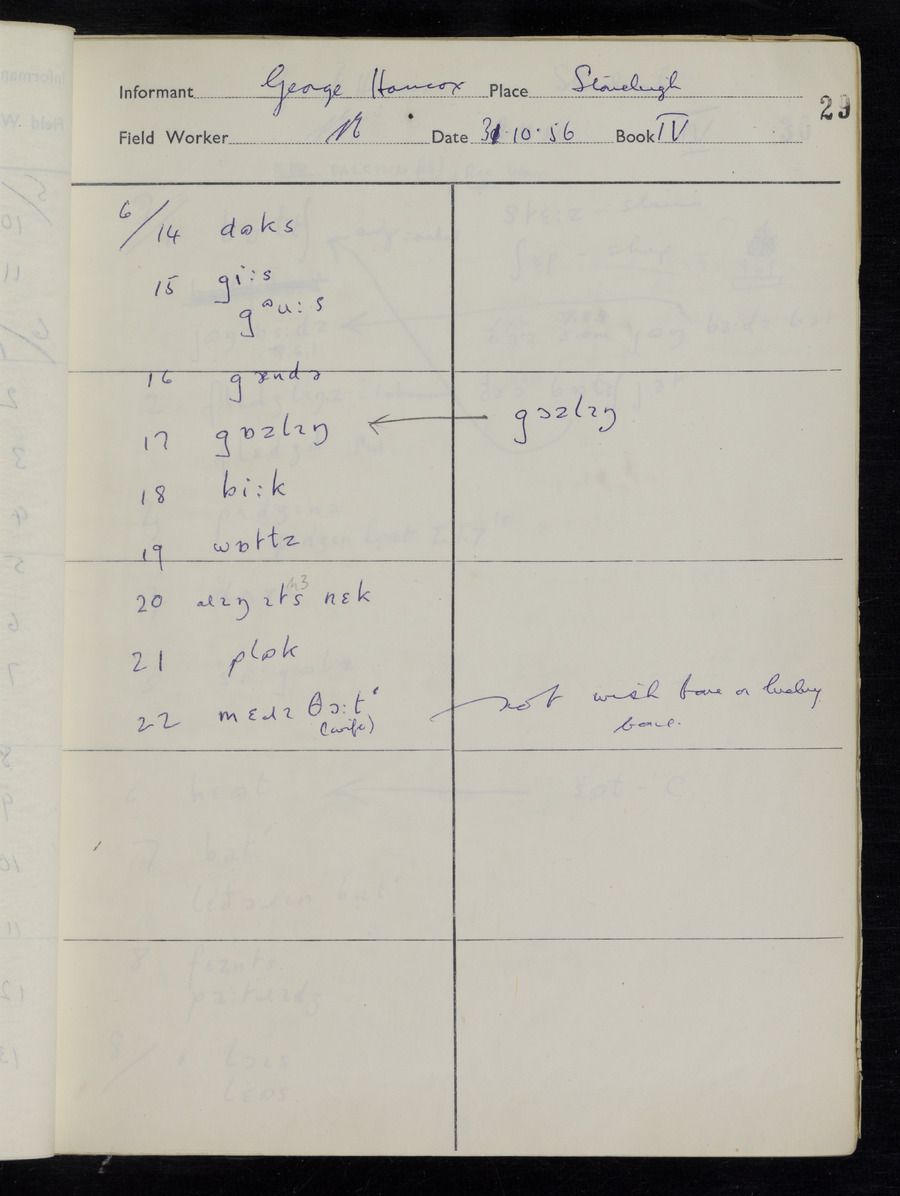 Informant George Hancox Place Stoneleigh
29
Field Worker Date 31·10·56 Book IV
6/14 dɒks
15 gi:s
gᵊu:s
16 gændə
17 gɒzlɪŋ ← gɔzlɪŋ
18 bi:k
19 wɒttz
20 nɛk
21 plɒk
22 mɛdɪ θɔ:t not wish bone or lucky
(wife) bone.